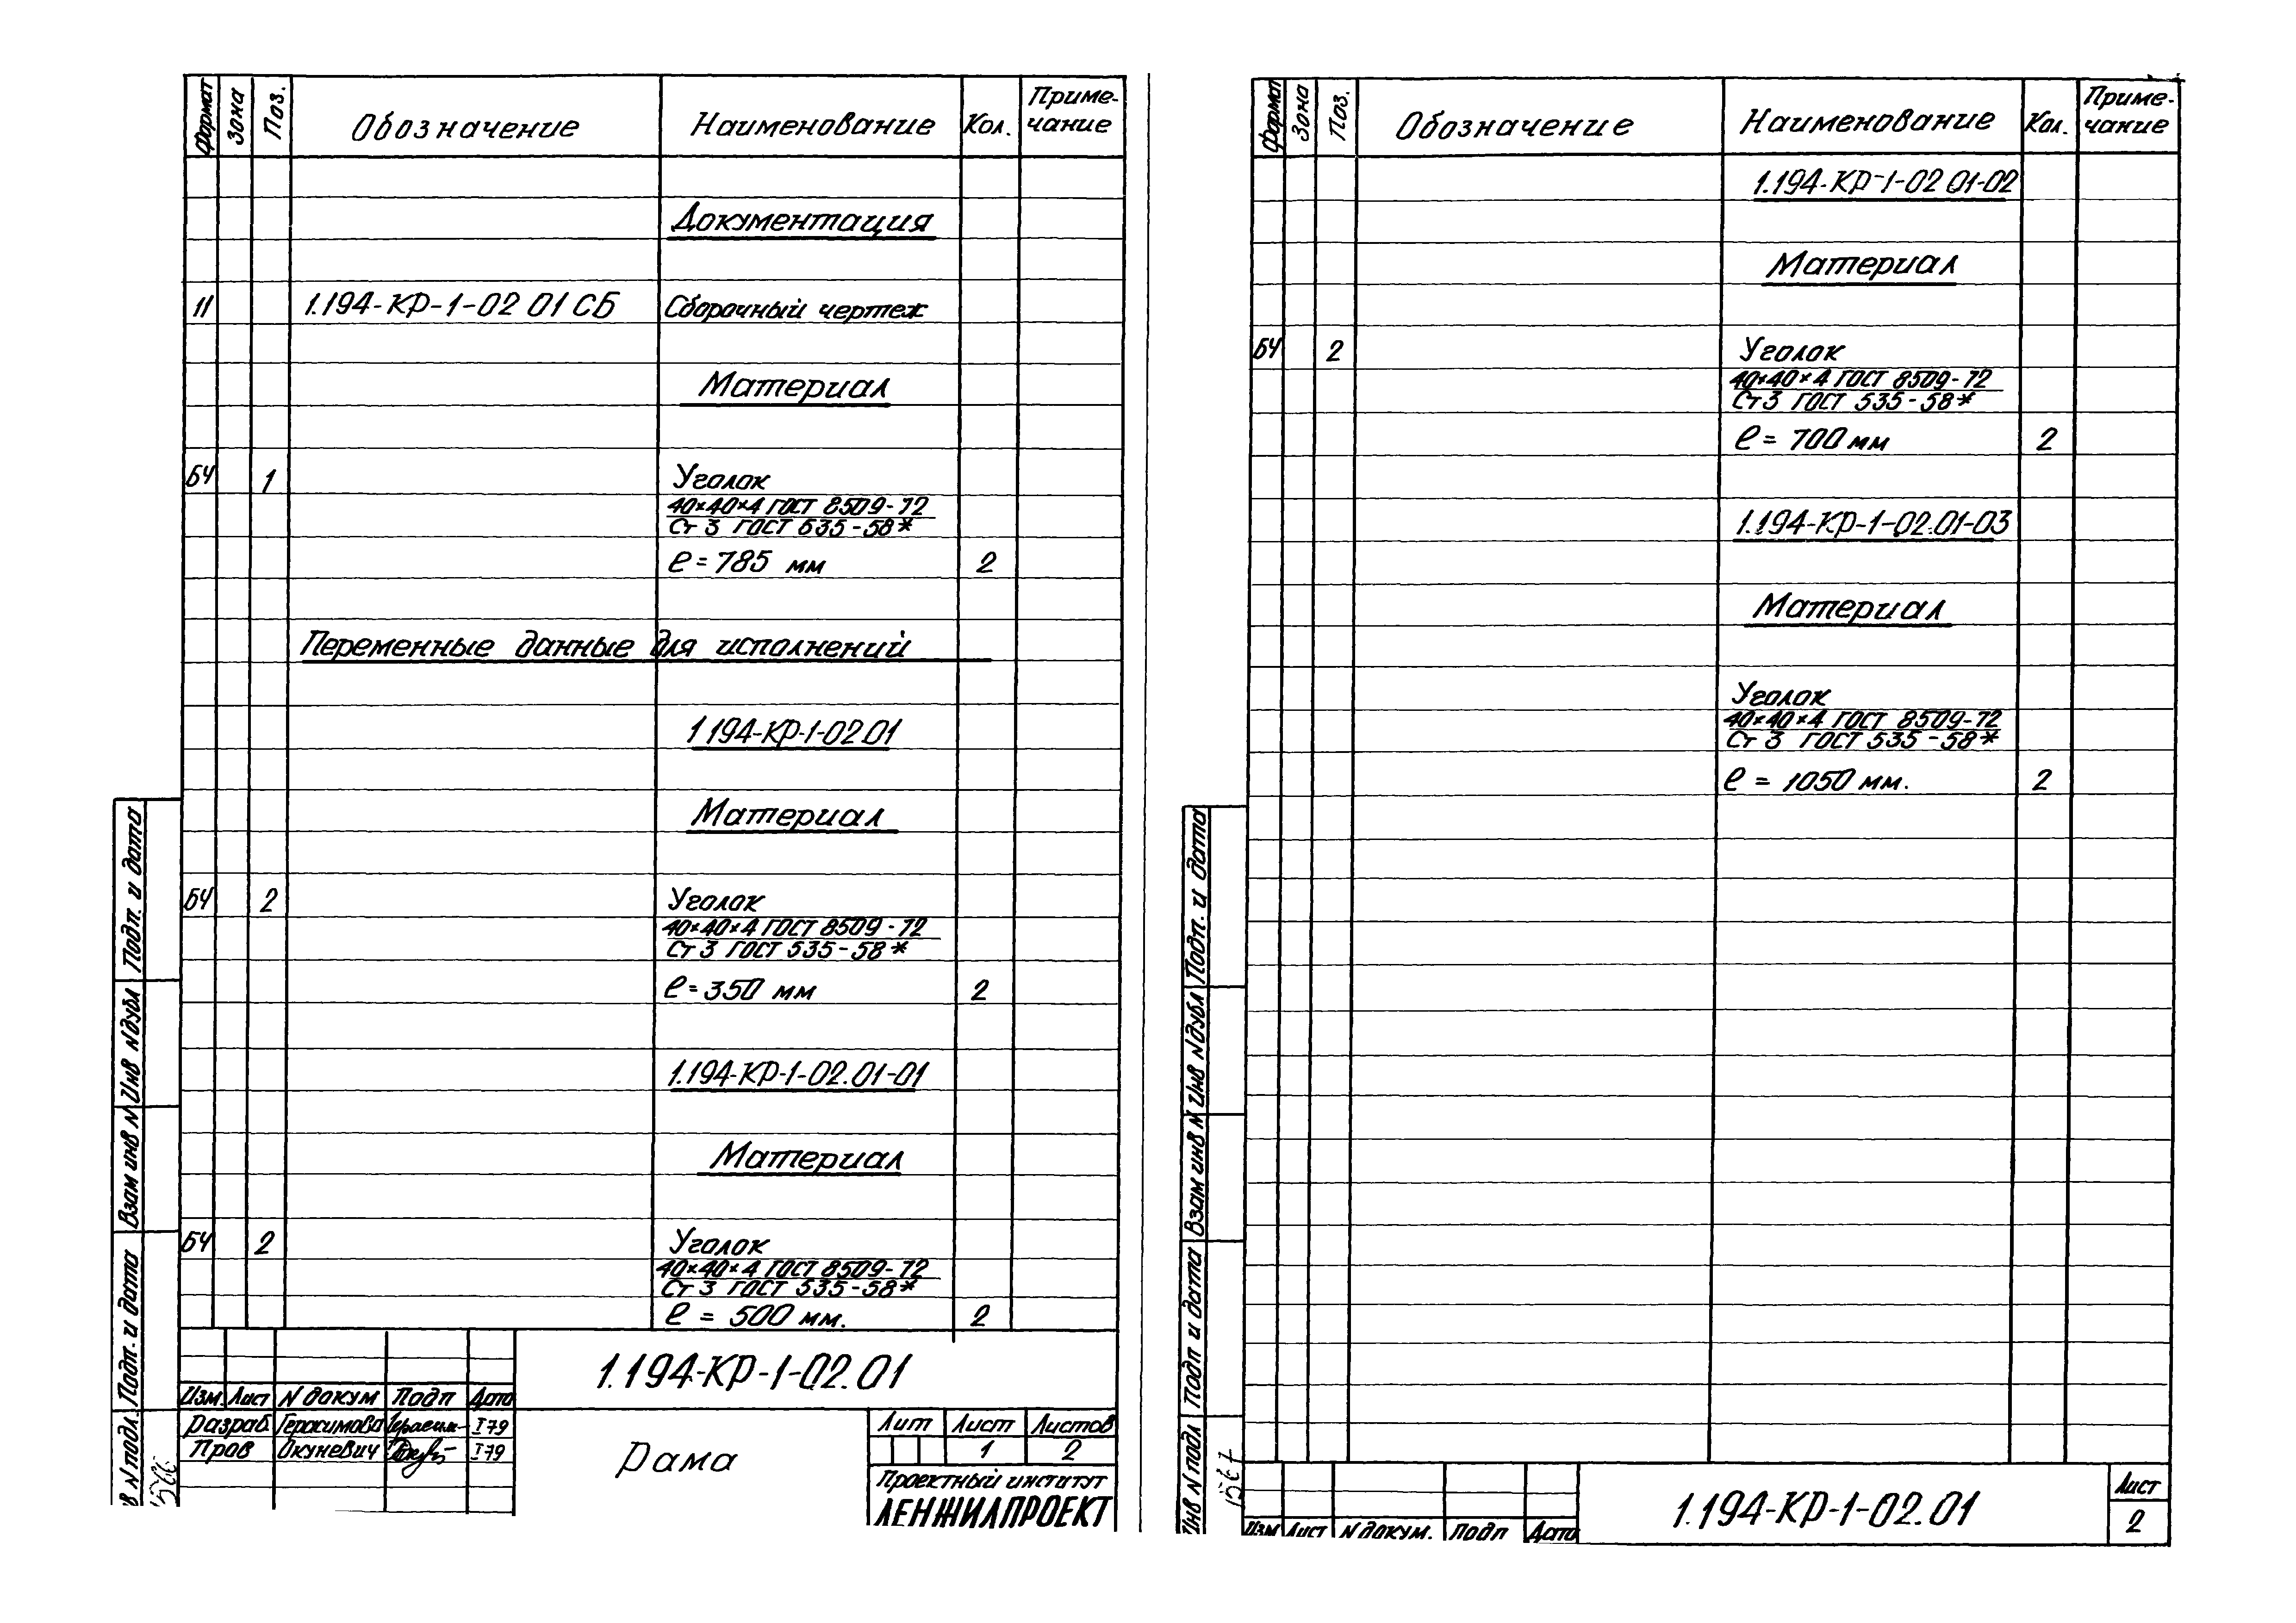 Формат Зона Поз. Обозначение Наименование Кол. Приме-
чание
Документация
11 1.194-КР-1-02 01 СБ Сборочный чертеж
Материал
БЧ 1 Уголок
40×40×4 ГОСТ 8509-72
Ст 3 ГОСТ 535-58*
ℓ = 785 мм 2
Переменные данные для исполнений
1.194-КР-1-02.01
Материал
БЧ 2 Уголок
40×40×4 ГОСТ 8509-72
Ст 3 ГОСТ 535-58*
ℓ = 350 мм 2
1.194-КР-1-02.01-01
Материал
БЧ 2 Уголок
40×40×4 ГОСТ 8509-72
Ст 3 ГОСТ 535-58*
ℓ = 500 мм. 2
Подп. и дата
Инв N дубл
Взам инв N
Подп. и дата
в N подл.
1.194-КР-1-02.01
Изм. Лист N докум Подп Дата
Разраб Герасимова I 79
Пров Окуневич I 79
Рама
Лит Лист Листов
1 2
Проектный институт
ЛЕНЖИЛПРОЕКТ
Формат Зона Поз. Обозначение Наименование Кол. Приме-
чание
1.194-КР-1-02 01-02
Материал
БЧ 2 Уголок
40×40×4 ГОСТ 8509-72
Ст 3 ГОСТ 535-58*
ℓ = 700 мм 2
1.194-КР-1-02.01-03
Материал
Уголок
40×40×4 ГОСТ 8509-72
Ст 3 ГОСТ 535-58*
ℓ = 1050 мм. 2
Подп. и дата
Инв N дубл
Взам инв N
Подп и дата
Инв N подл
1567
Изм Лист N докум. Подп Дата
1.194-КР-1-02.01
Лист
2